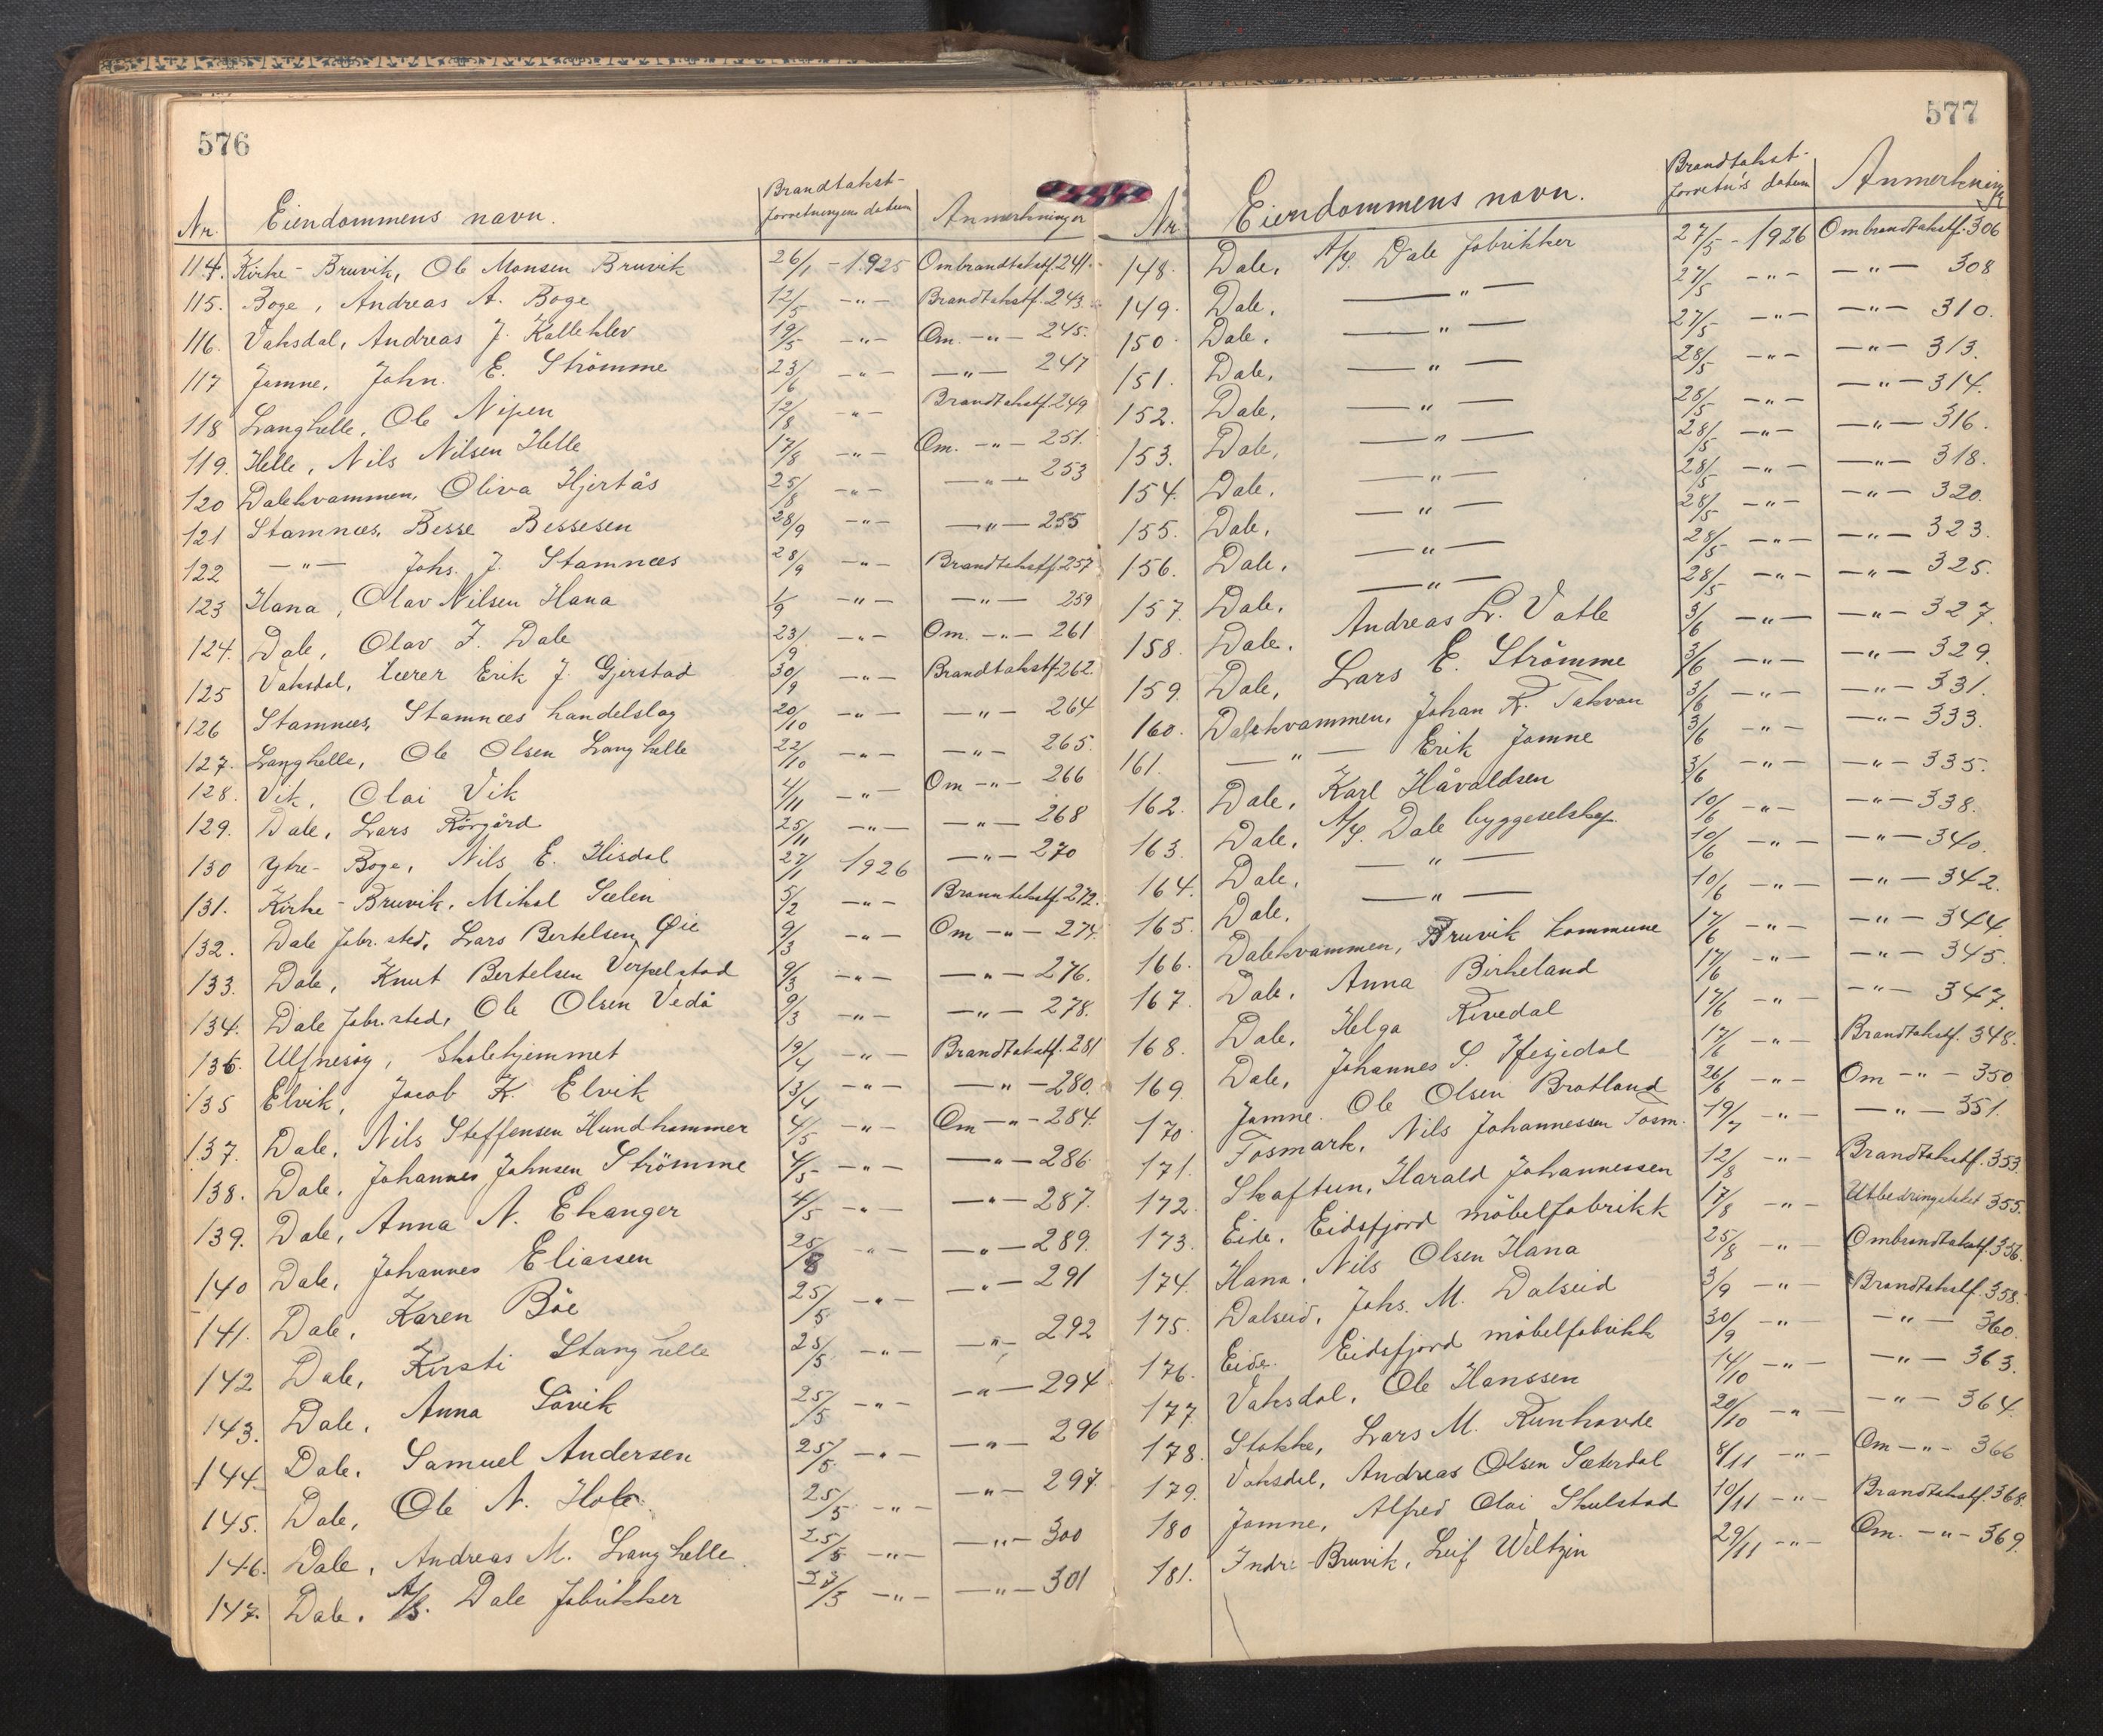 576
Nr. Eiendommens navn. Brandtakst-forretningens datum Anmerkninger
114. Kirke-Bruvik, Ole Monsen Bruvik 26/1 - 1925 Ombrandtakstf. 241.
115. Boge, Andreas A. Boge 12/5 -"- Brandtakstf. 243.
116. Vaksdal, Andreas J. Kalleklev 19/5 -"- Om. -"- 245.
117 Jamne, John. E. Strömme 23/6 -"- -"- 247
118 Langhelle, Ole Nipen 12/8 -"- Brandtakstf. 249
119. Helle, Nils Nilsen Helle 17/8 -"- Om. -"- 251.
120 Dalekvammen, Oliva Hjertås 25/8 -"- -"- 253
121 Stamnæs, Besse Bessesen 28/9 -"- -"- 255
122 -"- Johs. J. Stamnæs 28/9 -"- Brandtakstf. 257
123 Hana, Olav Nilsen Hana 1/9 -"- -"- 259
124. Dale, Olav J. Dale 23/9 -"- Om. -"- 261
125 Vaksdal, lærer Erik J. Gjerstad 30/9 -"- Brandtakstf. 262.
126 Stamnæs, Stamnæs handelslag 20/10 -"- -"- 264
127. Langhelle, Ole Olsen Langhelle 22/10 -"- -"- 265.
128. Vik, Olai Vik 4/11 -"- Om -"- 266
129. Dale, Lars Rörgård 25/11 -"- -"- 268
130 Ytre-Boge, Nils E. Hisdal 27/1 1926 -"- 270
131. Kirke-Bruvik, Mikal Sælen 5/2 -"- Branntakstf. 272.
132. Dale fabr.sted, Lars Bertelsen Øie 9/3 -"- Om -"- 274.
133. Dale, Knut Bertelsen Verpelstad 9/3 -"- -"- 276.
134. Dale fabr.sted, Ole Olsen Vedå 9/3 -"- -"- 278.
136. Ulfnesøy, Skolehjemmet 19/4 -"- Brandtakstf. 281
135 Elvik, Jacob K. Elvik 13/4 -"- -"- 280.
137. Dale, Nils Steffensen Hundhammer 4/5 -"- Om -"- 284.
138. Dale, Johannes Johnsen Strömme 4/5 -"- -"- 286.
139. Dale, Anna N. Ekanger 4/5 -"- -"- 287.
140 Dale, Johannes Eliassen 25/8 -"- -"- 289.
141. Dale, Karen Böe 25/5 -"- -"- 291
142 Dale, Kirsti Stanghelle 25/5 -"- -"- 292
143. Dale, Anna Sövik 25/5 -"- -"- 294
144. Dale, Samuel Andersen 25/5 -"- -"- 296
145. Dale, Ole N. Hole 25/5 -"- -"- 297.
146. Dale, Andreas M. Langhelle. 25/5 -"- -"- 300
147. Dale, A/S. Dale fabrikker 27/5 -"- -"- 301
577
Nr. Eiendommens navn. Brandtakst-forretn's datum Anmerkninger
148. Dale, A/S. Dale fabrikker 27/5 - 1926 Ombrandtakstf. 306
149. Dale, -"- 27/5 -"- -"- 308
150. Dale, -"- 27/5 -"- -"- 310.
151. Dale, -"- 28/5 -"- -"- 313.
152. Dale, -"- 28/5 -"- -"- 314.
153. Dale, -"- 28/5 -"- -"- 316.
154. Dale, -"- 28/5 -"- -"- 318.
155. Dale, -"- 28/5 -"- -"- 320.
156. Dale, -"- 28/5 -"- -"- 323.
157. Dale, -"- 28/5 -"- -"- 325.
158. Dale, Andreas L. Vatle 3/6 -"- -"- 327.
159. Dale, Lars E. Strömme 3/6 -"- -"- 329.
160. Dalekvammen, Johan K. Takvam 3/6 -"- -"- 331.
161. -"- Erik Jamne 3/6 -"- -"- 333.
162. Dale, Karl Håvaldsen 3/6 -"- -"- 335.
163. Dale, A/S. Dale byggeselskap 10/6 -"- -"- 338.
164. Dale, -"- 10/6 -"- -"- 340.
165. Dale, -"- 10/6 -"- -"- 342.
166. Dalekvammen, Bruvik kommune 17/6 -"- -"- 344.
167. Dale, Anna Birkeland 17/6 -"- -"- 345.
168. Dale, Helga Rivedal 17/6 -"- -"- 347.
169. Dale, Johannes S. 17/6 -"- Brandtakstf. 348.
170. Jamne. Ole Olsen Bratland 26/6 -"- Om -"- 350.
171. Fosmark, Nils Johannessen Fosm. 19/7 -"- -"- 351.
172. Skaftun, Harald Johannessen 12/8 -"- Brandtakstf. 353.
173. Eide, Eidsfjord möbelfabrikk 17/8 -"- Utbedringstakst 355.
174. Hana, Nils Olsen Hana 25/8 -"- Ombrandtakstf. 356.
175. Dalseid, Johs. M. Dalseid 3/9 -"- Brandtakstf. 358.
176. Eide. Eidsfjord möbelfabrikk 30/9 -"- -"- 360.
177. Vaksdal, Ole Hanssen 14/10 -"- -"- 363.
178. Stokke, Lars M. Runhovde 20/10 -"- -"- 364.
179. Vaksdal, Andreas Olsen Sæterdal 8/11 -"- Om -"- 366
180 Jamne, Alfred Olai Skulstad 10/11 -"- Brandtakstf. 368.
181. Indre-Bruvik, Leif Weltzin 29/11 -"- Om. -"- 369.